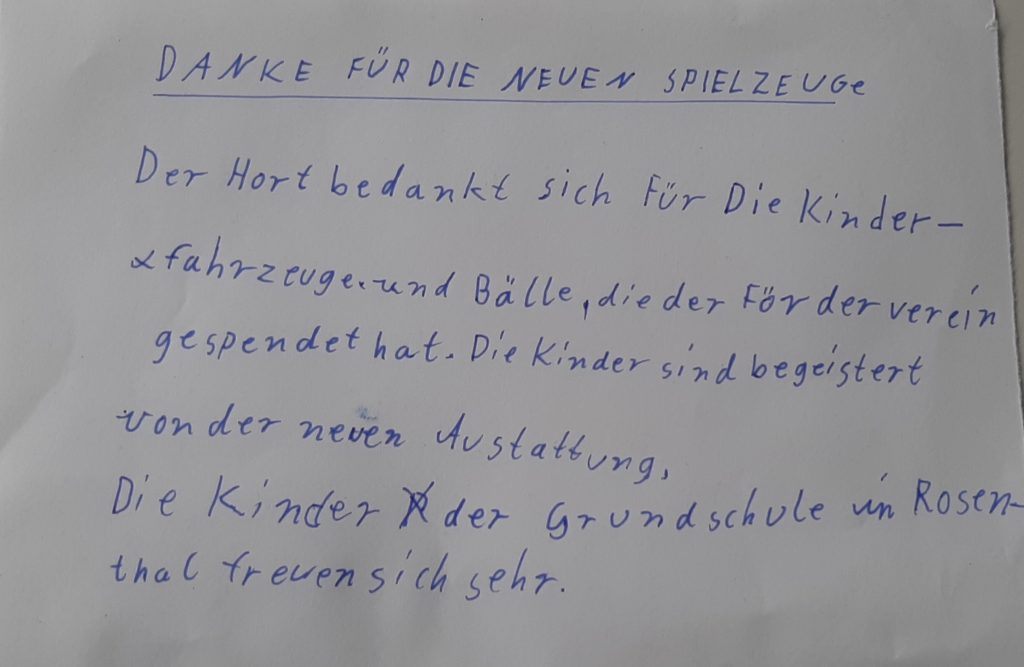 DANKE FÜR DIE NEUEN SPIELZEUGe
Der Hort bedankt sich Für Die Kinder-
fahrzeuge und Bälle, die der Förderverein
gespendet hat. Die Kinder sind begeistert
von der neuen Austattung.
Die Kinder der Grundschule in Rosen-
thal freuen sich sehr.